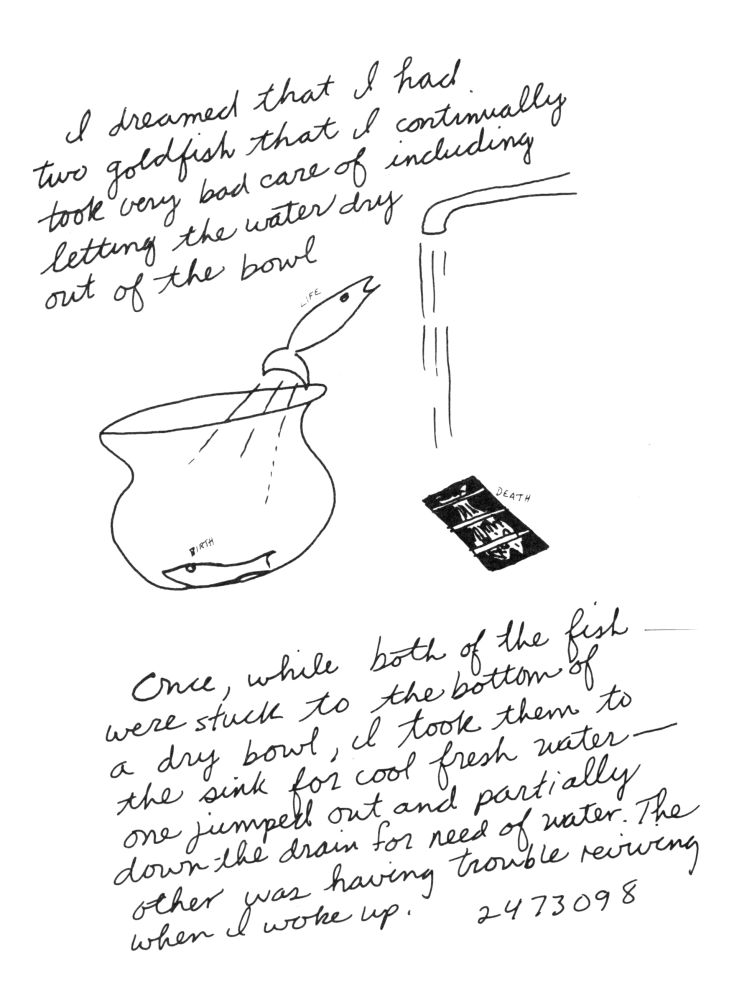 I dreamed that I had
two goldfish that I continually
took very bad care of including
letting the water dry
out of the bowl
LIFE
DEATH
BIRTH
Once, while both of the fish —
were stuck to the bottom of
a dry bowl, I took them to
the sink for cool fresh water —
one jumped out and partially
down the drain for need of water. The
other was having trouble reviving
when I woke up. 2473098